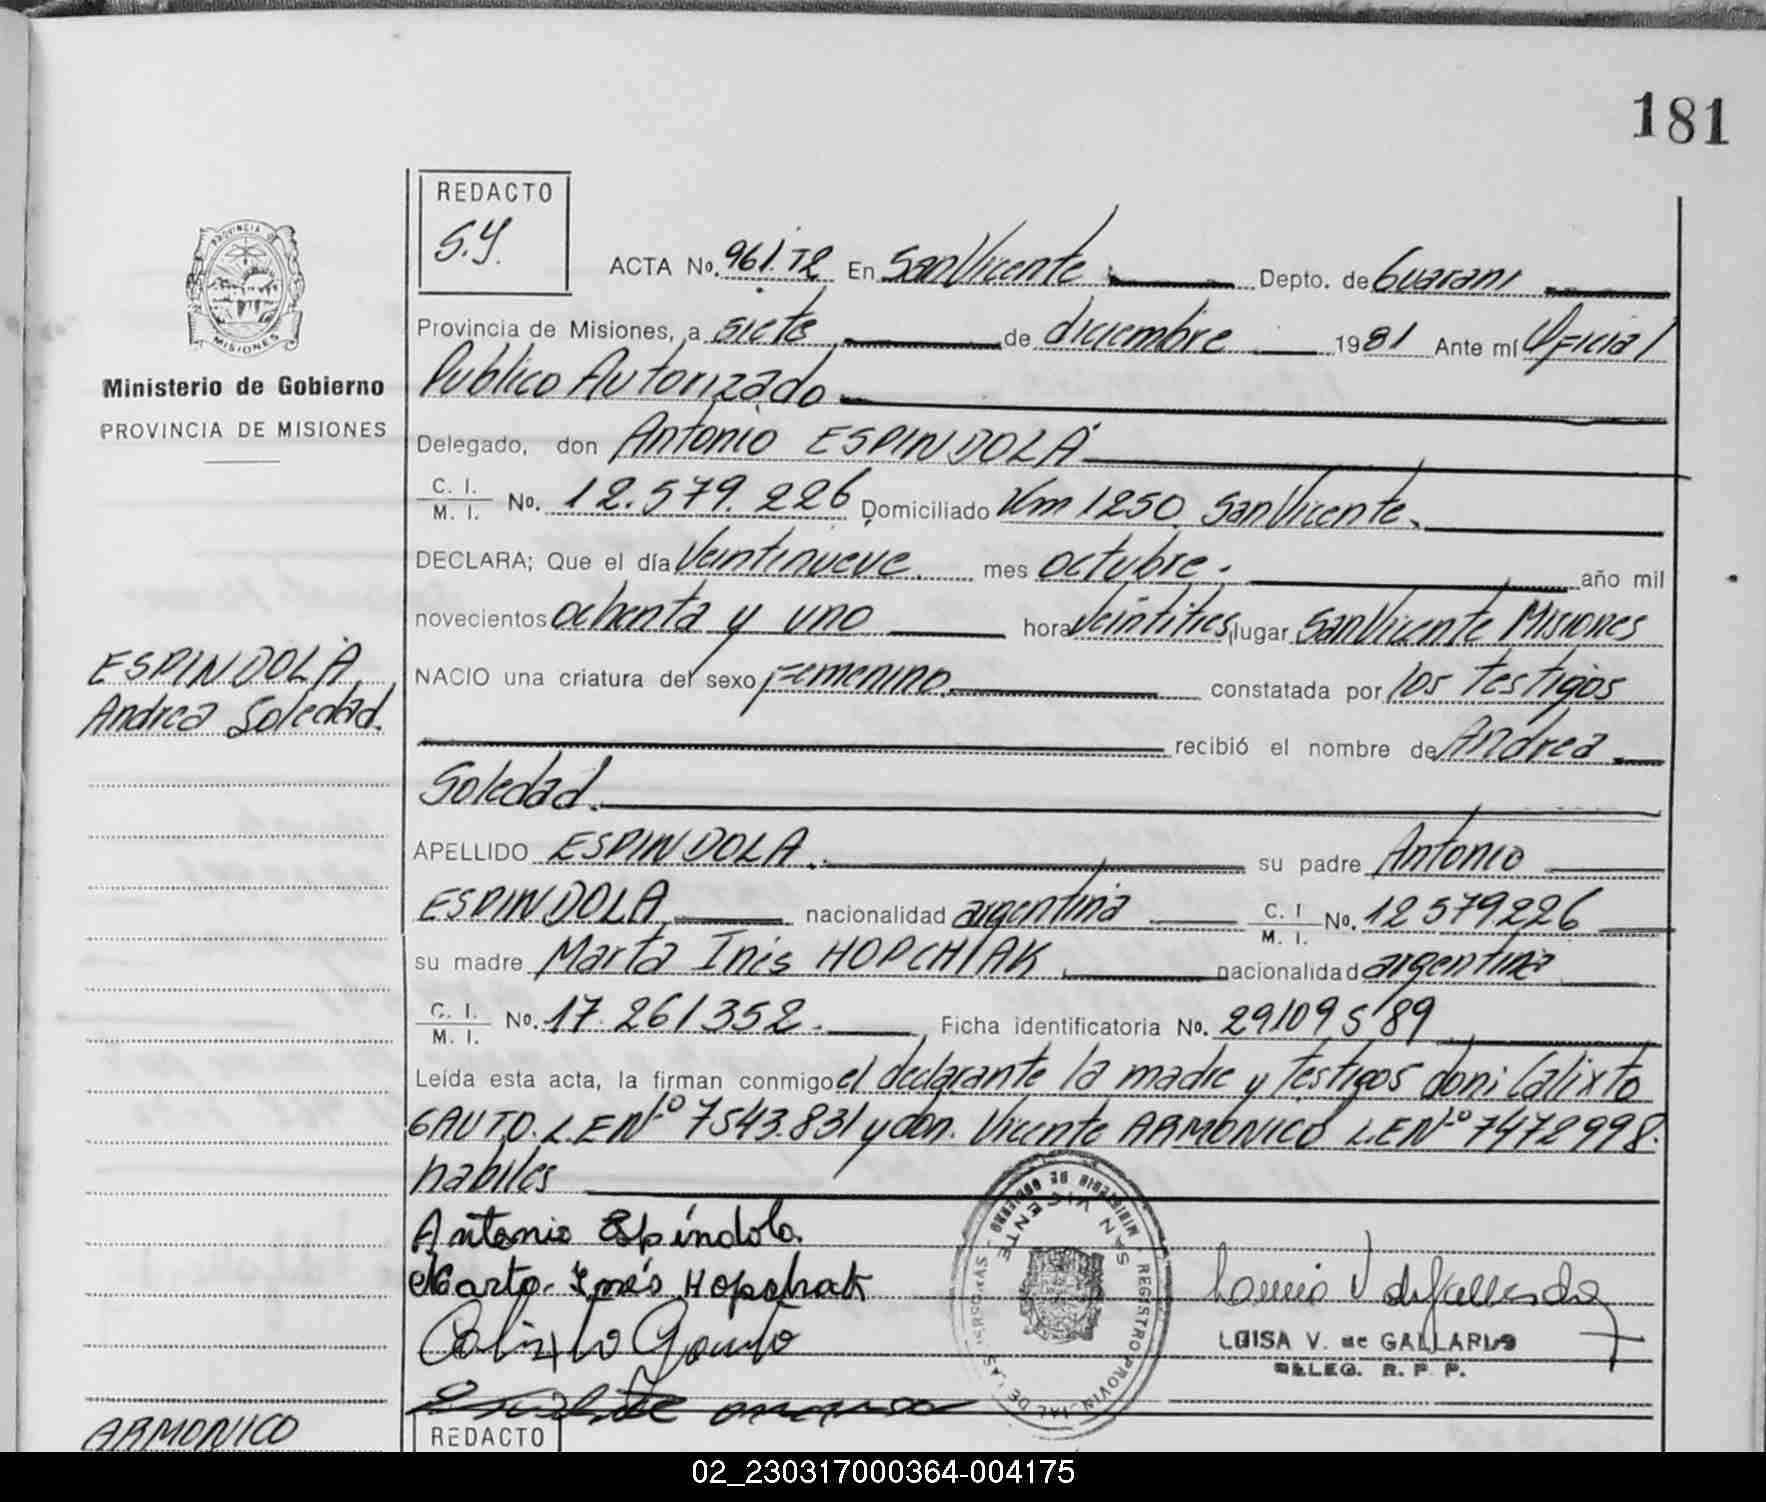 181
REDACTO
S.Y.
PROVINCIA DE
MISIONES
Ministerio de Gobierno
PROVINCIA DE MISIONES
ACTA No. 961.T2 En San Vicente Depto. de Guarani
Provincia de Misiones, a siete de diciembre 1981 Ante mí Oficial
Publico Autorizado
Delegado, don Antonio ESPINDOLA
C. I.
M. I. No. 12.579.226 Domiciliado Km 1250 San Vicente.
DECLARA; Que el día Veintinueve. mes octubre. año mil
novecientos ochenta y uno hora veintitres, lugar San Vicente Misiones
ESPINDOLA
Andrea Soledad.
NACIO una criatura del sexo femenino. constatada por los testigos
recibió el nombre de Andrea
Soledad.
APELLIDO ESPINDOLA. su padre Antonio
ESPINDOLA nacionalidad argentina C. I
M. I. No. 12579226
su madre Marta Inés HOPCHIAK nacionalidad argentina
C. I.
M. I. No. 17.261352. Ficha identificatoria No. 29109589
Leída esta acta, la firman conmigo el declarante la madre y testigos don: Calixto
GAUTO. L.E Nº 7543.831 y don. Vicente ARMONICO L.E Nº 7472998.
habiles
Antonio Espíndola.
Marta Inés Hopchak
Calixto Gauto
MINISTERIO DE GOBIERNO
SAN VICENTE
REGISTRO PROVINCIAL DE LAS PERSONAS
LUISA V. de GALLARDO
DELEG. R. P. P.
ARMONICO
REDACTO
02_230317000364-004175